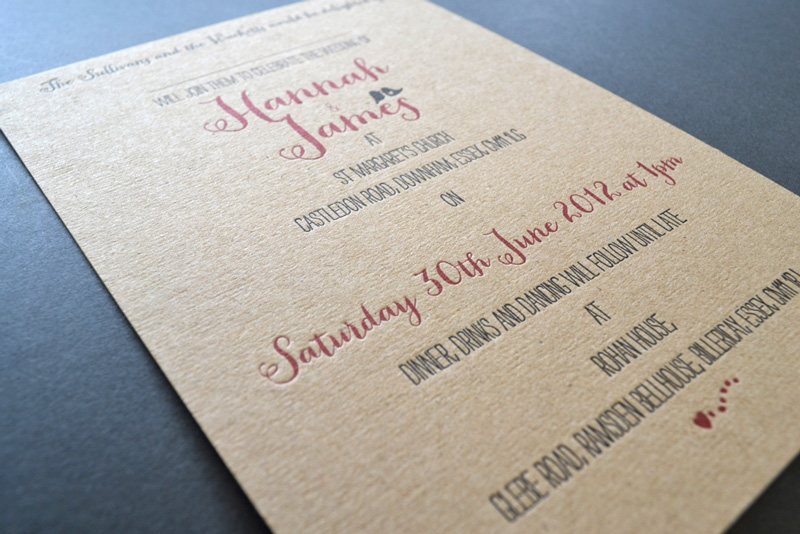 The Sullivans and the would be delighted
WILL JOIN THEM TO CELEBRATE THE WEDDING OF
Hannah
&
James
AT
ST MARGARET'S CHURCH
CASTLEDON ROAD, DOWNHAM, ESSEX, CM11 1LG
ON
Saturday 30th June 2012 at 1pm
DINNER, DRINKS AND DANCING WILL FOLLOW UNTIL LATE
AT
ROHAN HOUSE,
GLEBE ROAD, RAMSDEN BELLHOUSE, BILLERICAY, ESSEX, CM11